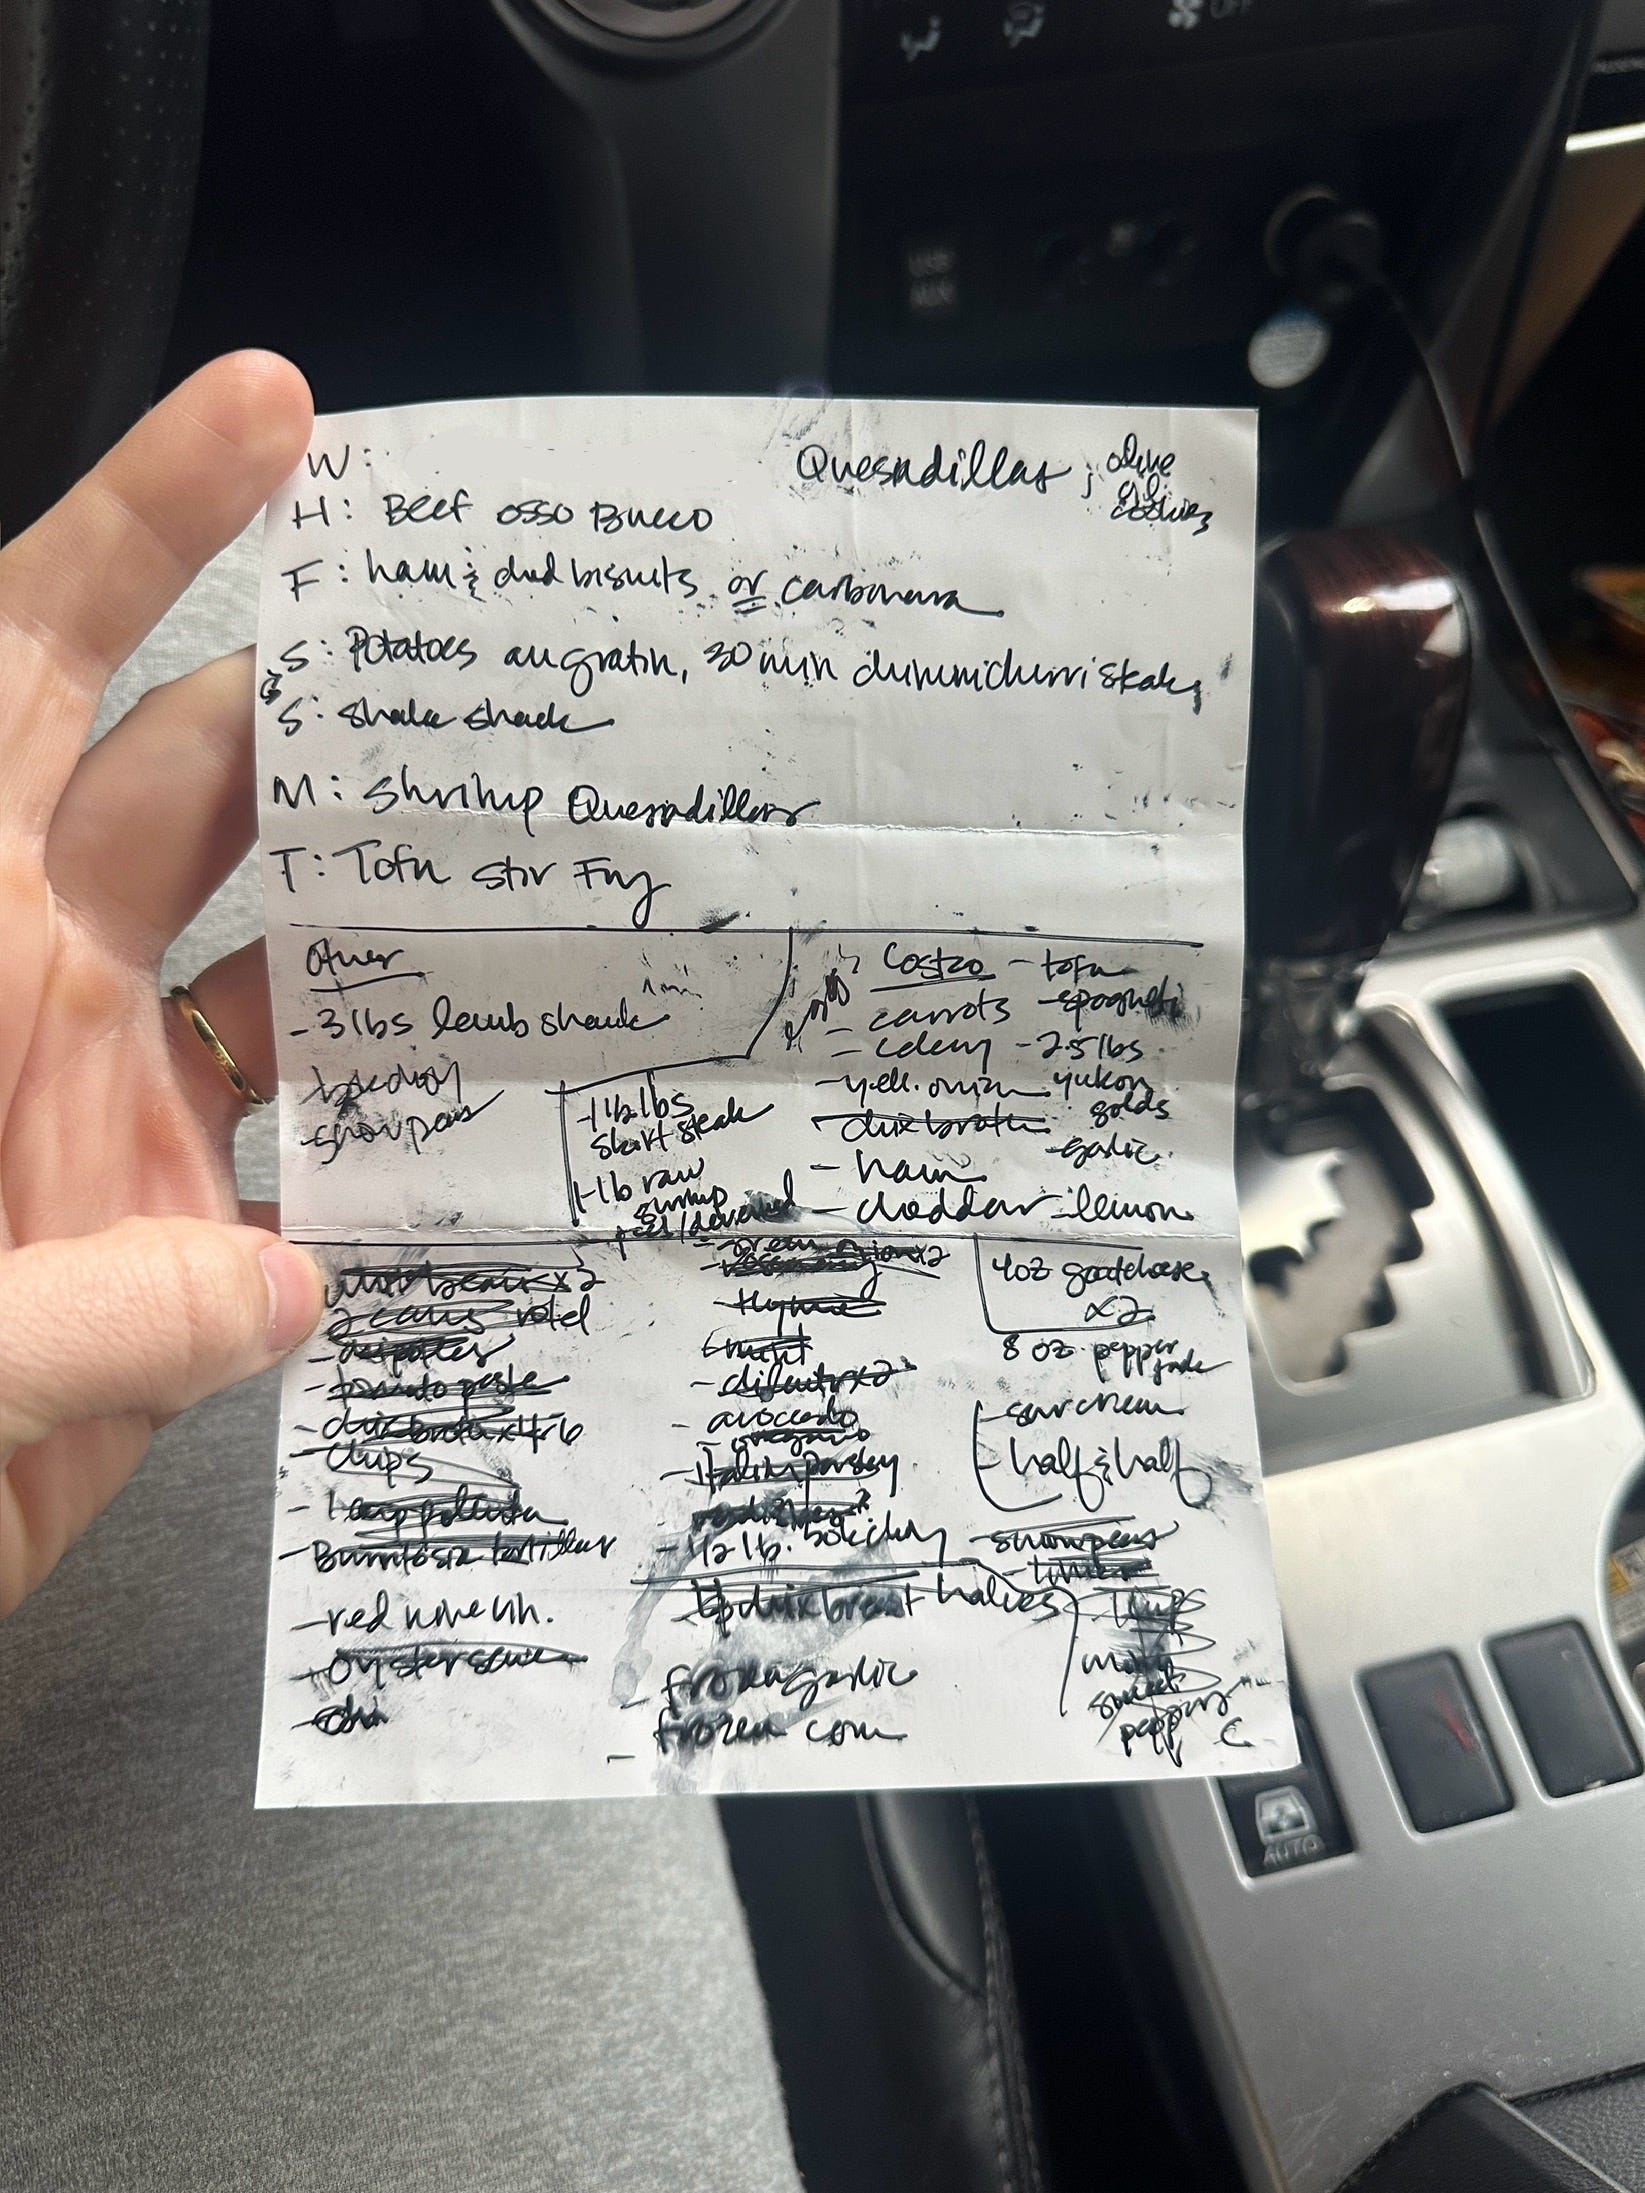 OFF
USB
AUX
W: Quesadillas ; olive
oil
cookies
H: Beef osso Bucco
F: ham & ched biscuits or carbonara
S: Potatoes au gratin, 30 min chimmichurri steak,
S: shake shack
M: Shrimp Quesadillas
T: Tofu Stir Fry
Other
- 3 lbs lamb shank
- bok choy
- snow peas
- 1 1/2 lbs
skirt steak
- 1 lb raw
shrimp
peel/deveined
Costco - tofu
- carrots - spaghetti
- celery - 2.5 lbs
- yell. onion yukon
golds
- chix broth
- garlic
- ham
- cheddar - lemon
x2
2 cans rotel
- tomato paste
- chix broth x 4-6
- chips
- polenta
- Burrito size tortillas
- red wine vin.
- oyster sauce
- green onion x2
- rosemary
- thyme
- mint
- cilantro x2
- avocado
- oregano
- Italian parsley
radishes?
- 1/2 lb. bok choy
chix breast halves
- frozen garlic
- frozen corn
4oz goat cheese
x2
8 oz. pepper
jack
- sour cream
- half & half
- snow peas
- limes
mini
sweet
peppers
AUTO